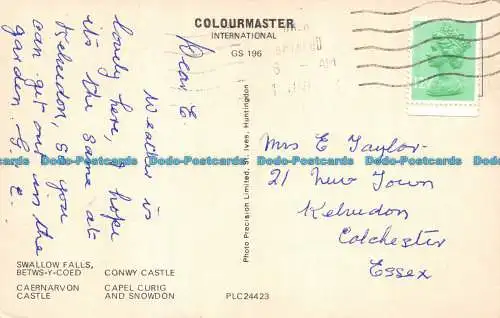 COLOURMASTER
INTERNATIONAL
GS 196
Dear E.
Weather is
lovely here, I hope
it's the same at
Kelvedon, so you
can get out in the
garden. G. E.
Photo Precision Limited, St. Ives, Huntingdon
Mrs E Taylor
21 New Town
Kelvedon
Colchester
Essex
SWALLOW FALLS,
BETWS-Y-COED
CONWY CASTLE
CAERNARVON
CASTLE
CAPEL CURIG
AND SNOWDON
PLC24423
Dodo-Postcards.com